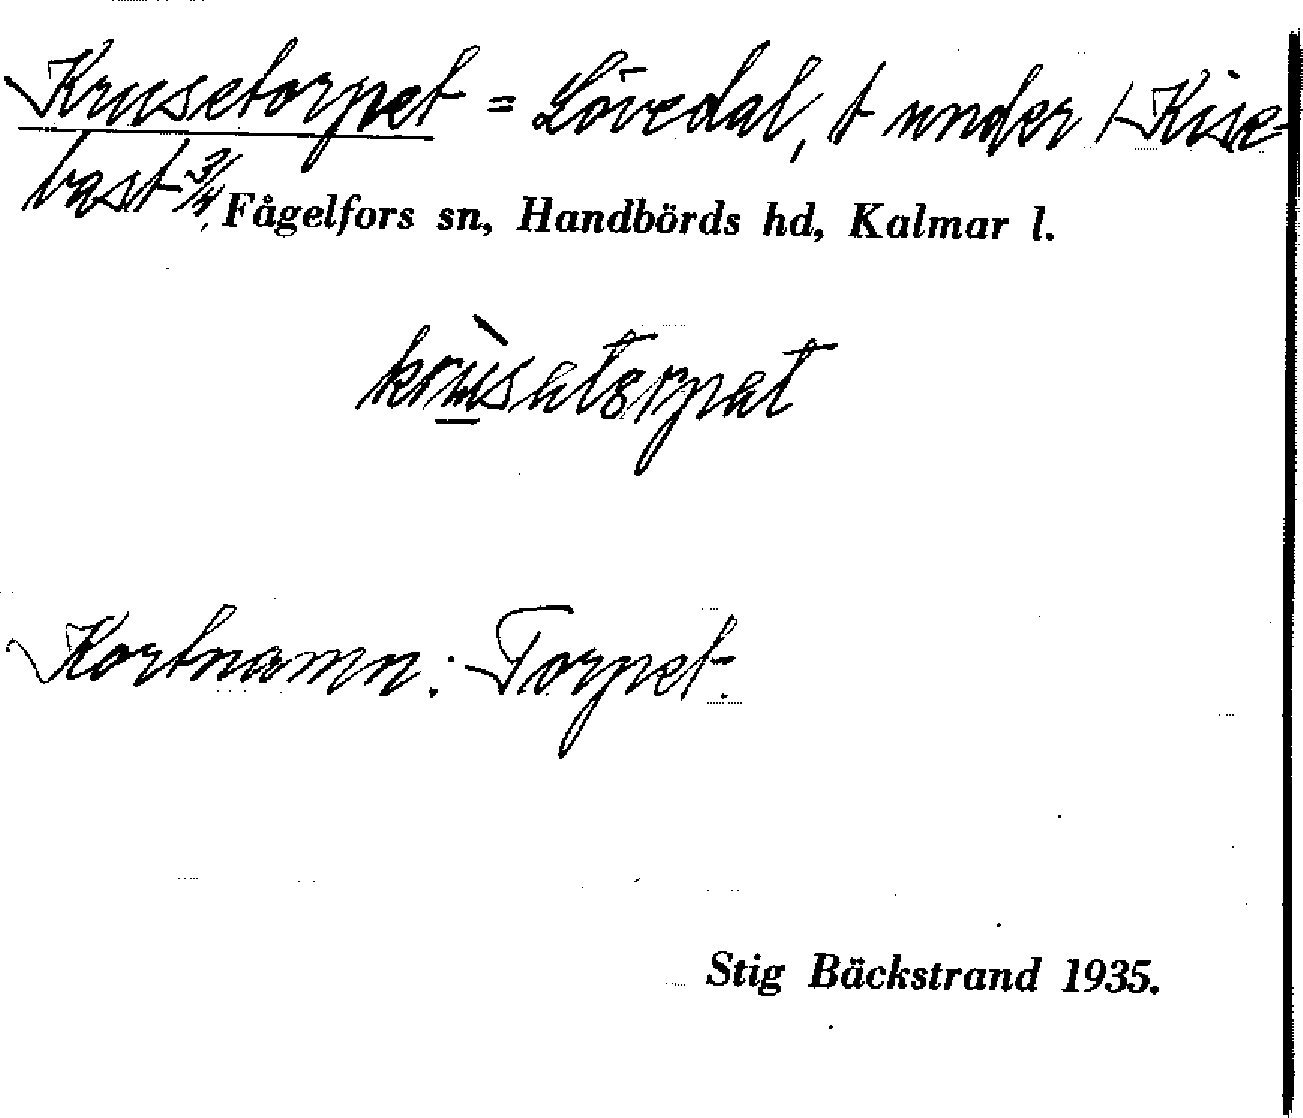 Krusetorpet = Lövedal, t under Kise-
bast 3/4, Fågelfors sn, Handbörds hd, Kalmar l.
krùsətorpət
Kortnamn: Torpet.
Stig Bäckstrand 1935.